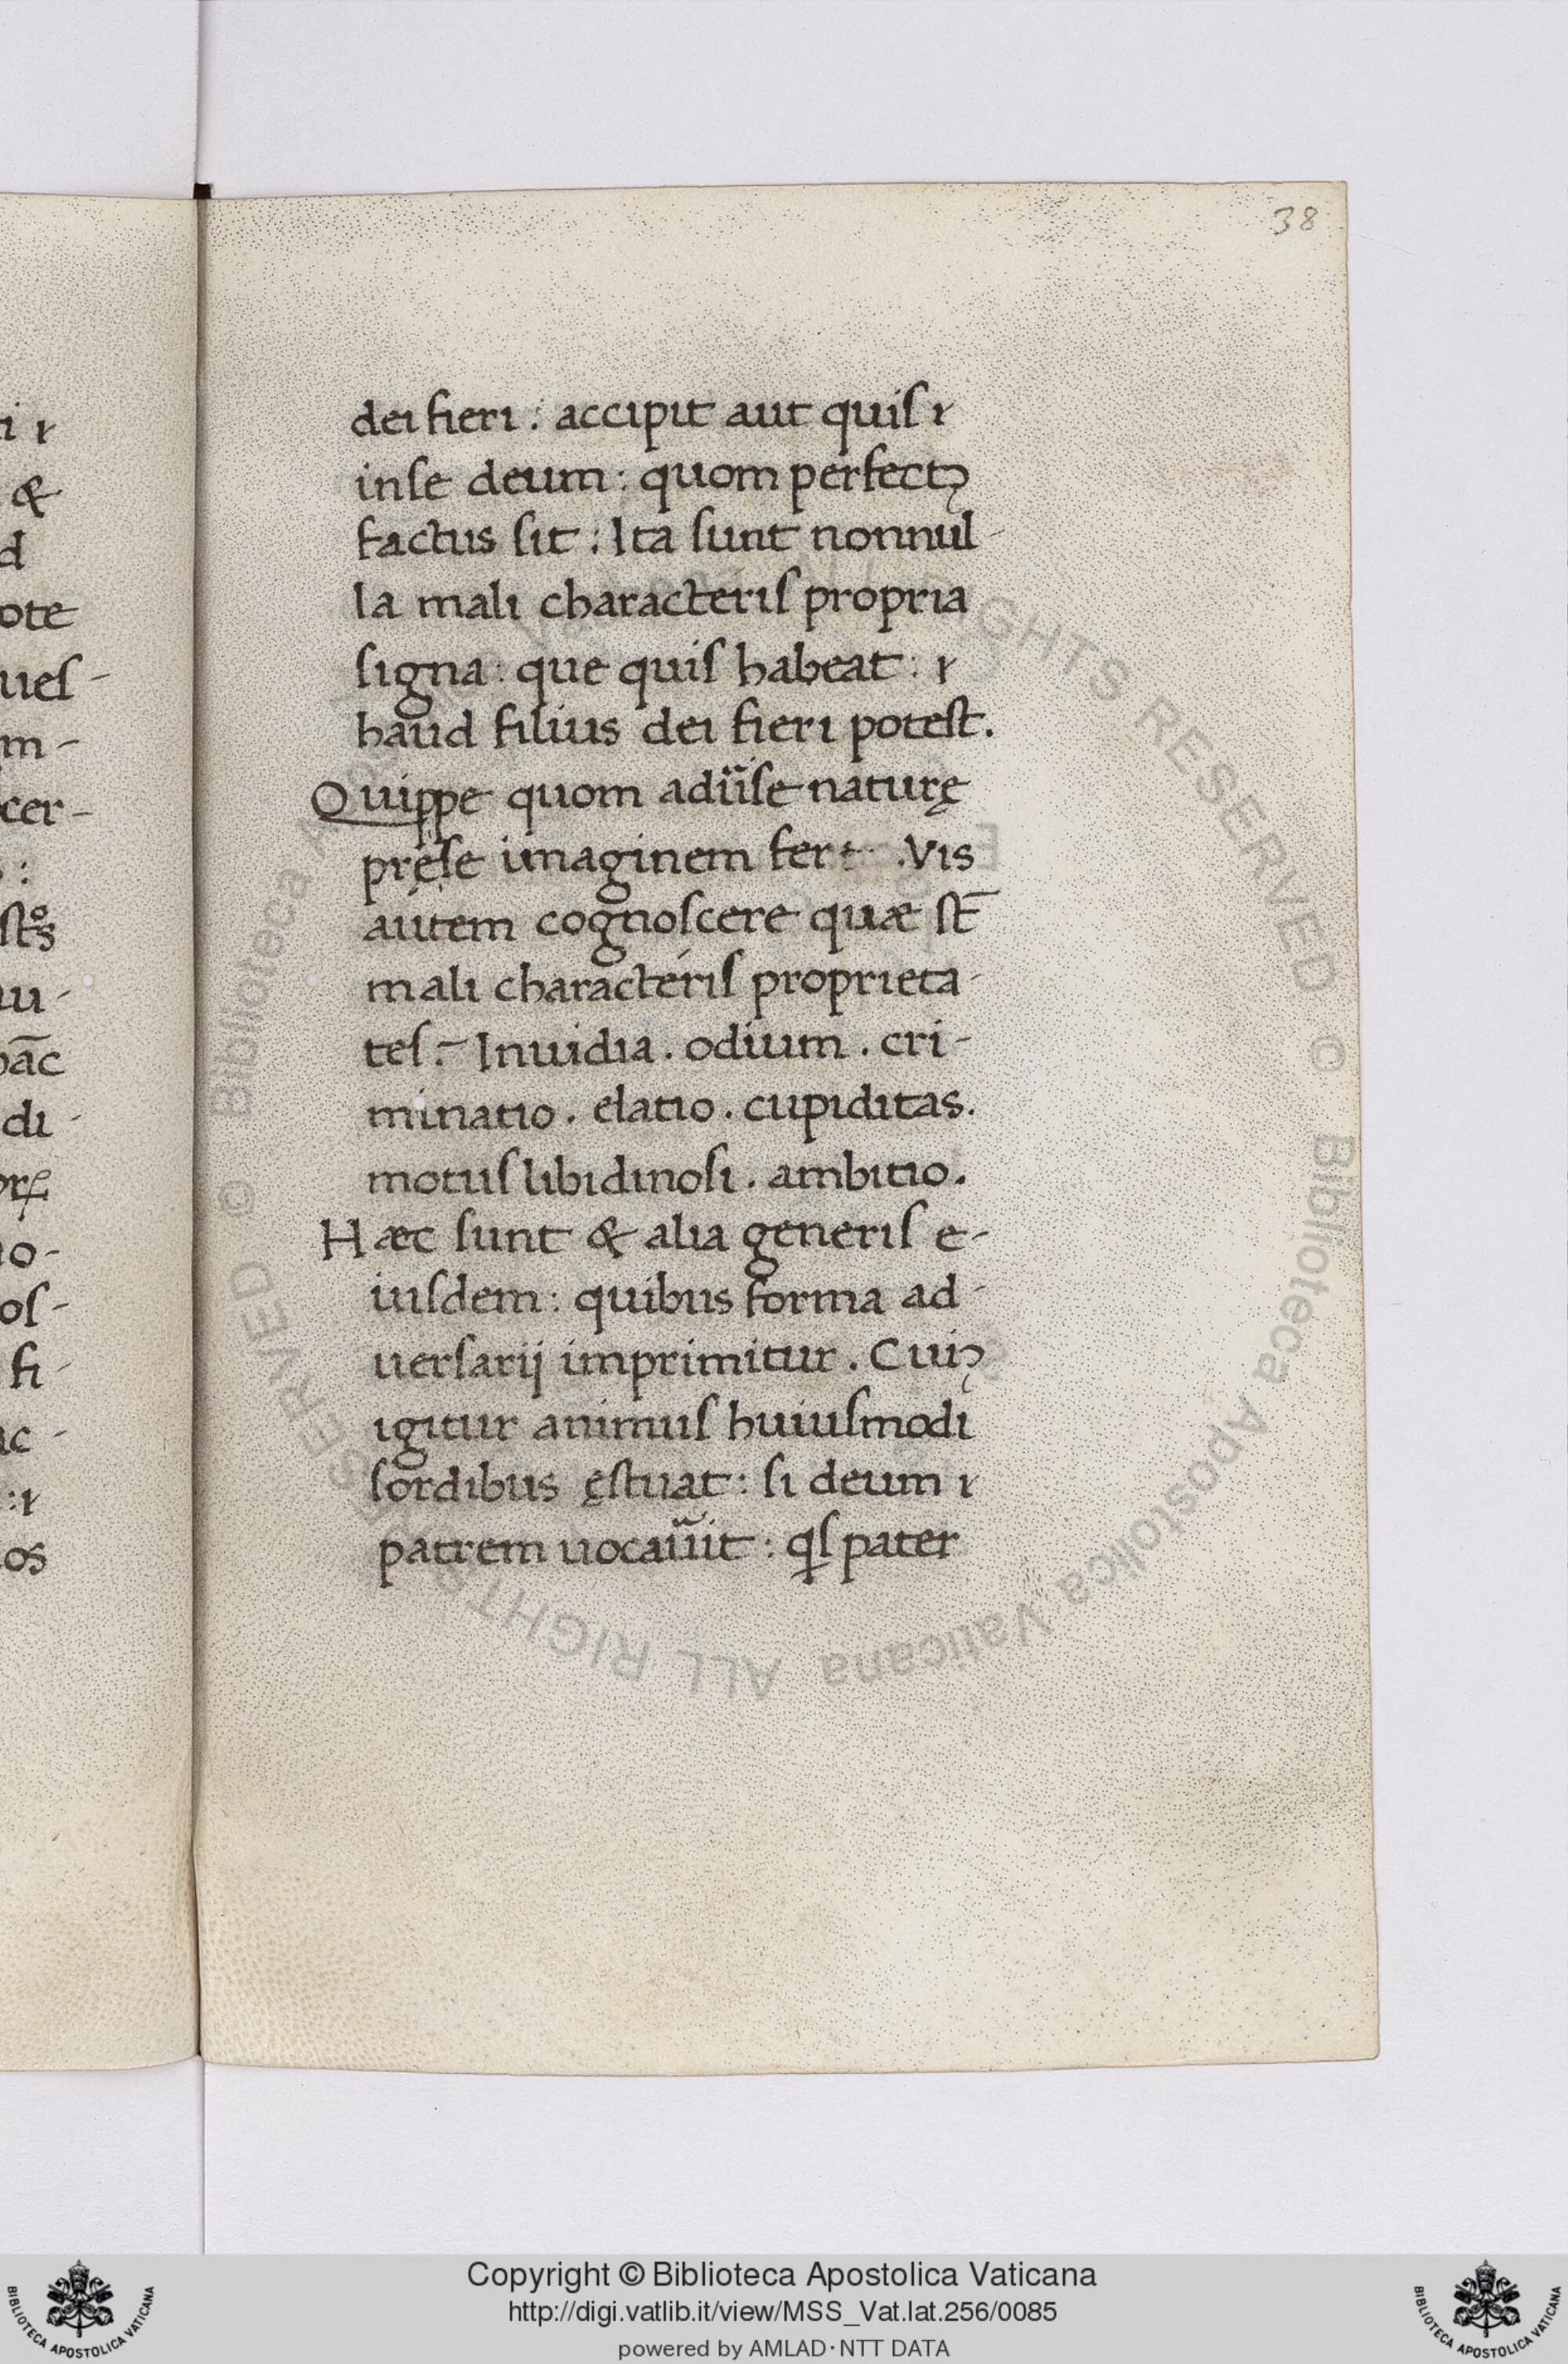 38
dei fieri : accipit aut quiſ ı
inſe deum : quom perfectꝯ
factus ſit : Ita ſunt nonnul-
la mali characteriſ propria
ſigna : que quiſ habeat : ı
haud filius dei fieri poteſt.
Quippe quom adũſe naturę
pręſe imaginem fert . Vis
autem cognoſcere quæ ſt̄
mali characteriſ proprieta-
teſ :- Inuidia . odium . cri-
minatio . elatio . cupiditas.
motuſ libidinoſi . ambitio.
Hæc ſunt & alia generiſ e-
iuſdem : quibus forma ad-
uerſarij imprimitur . Cuiꝯ
igitur animuſ huiuſmodi
ſordibus ęſtuat : ſi deum ı
patrem uocaũit : qſ pater
i ı
&
d
ote
ueſ-
m-
cer-
:
u-
āc
di-
o-
oſ-
fi-
c-
: ı
os
© Biblioteca Apostolica Vaticana ALL RIGHTS RESERVED
© Biblioteca Apostolica Vaticana ALL RIGHTS RESERVED
Copyright © Biblioteca Apostolica Vaticana
http://digi.vatlib.it/view/MSS_Vat.lat.256/0085
powered by AMLAD·NTT DATA
BIBLIOTECA APOSTOLICA VATICANA
BIBLIOTECA APOSTOLICA VATICANA